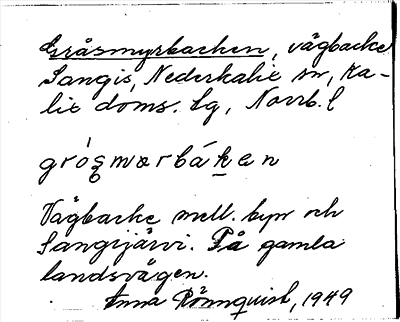 Gråsmyrbacken, vägbacke
Sangis, Nederkalix sn, Ka-
lix doms. lg, Norrb. l
Vägbacke mell. byn och
Sangijärvi. På gamla
landsvägen.
Anna Rönnquist, 1949